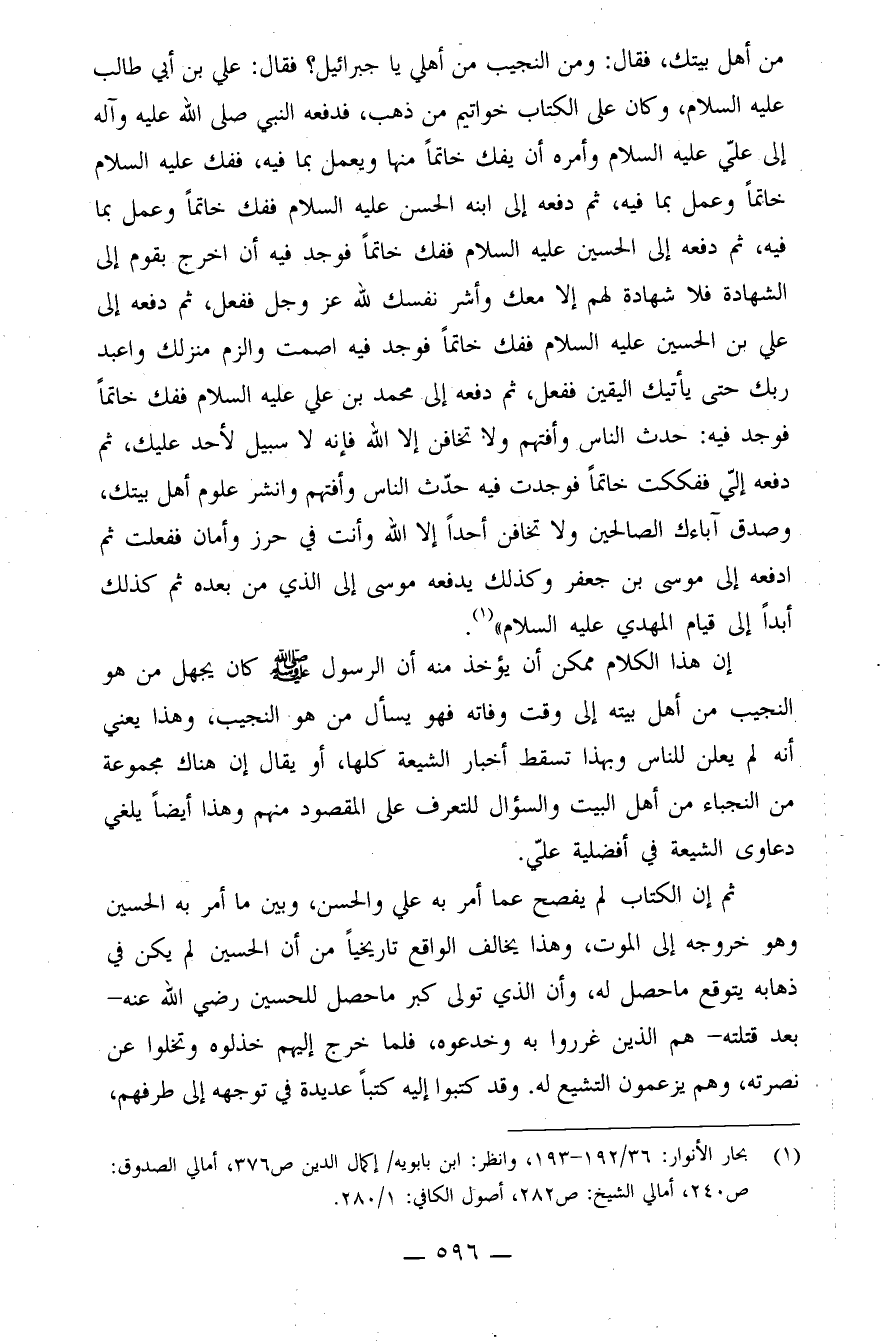 من أهل بيتك، فقال: ومن النجيب من أهلي يا جبرائيل؟ فقال: علي بن أبي طالب
عليه السلام، وكان على الكتاب خواتيم من ذهب، فدفعه النبي صلى الله عليه وآله
إلى عليّ عليه السلام وأمره أن يفك خاتماً منها ويعمل بما فيه، ففك عليه السلام
خاتماً وعمل بما فيه، ثم دفعه إلى ابنه الحسن عليه السلام ففك خاتماً وعمل بما
فيه، ثم دفعه إلى الحسين عليه السلام ففك خاتماً فوجد فيه أن اخرج بقوم إلى
الشهادة فلا شهادة لهم إلا معك وأشر نفسك لله عز وجل ففعل، ثم دفعه إلى
علي بن الحسين عليه السلام ففك خاتماً فوجد فيه اصمت والزم منزلك واعبد
ربك حتى يأتيك اليقين ففعل، ثم دفعه إلى محمد بن علي عليه السلام ففك خاتماً
فوجد فيه: حدث الناس وأفتهم ولا تخافن إلا الله فإنه لا سبيل لأحد عليك، ثم
دفعه إليّ ففككت خاتماً فوجدت فيه حدّث الناس وأفتهم وانشر علوم أهل بيتك،
وصدق آباءك الصالحين ولا تخافن أحداً إلا الله وأنت في حرز وأمان ففعلت ثم
ادفعه إلى موسى بن جعفر وكذلك يدفعه موسى إلى الذي من بعده ثم كذلك
أبداً إلى قيام المهدي عليه السلام»(١).
إن هذا الكلام ممكن أن يؤخذ منه أن الرسول ﷺ كان يجهل من هو
النجيب من أهل بيته إلى وقت وفاته فهو يسأل من هو النجيب، وهذا يعني
أنه لم يعلن للناس وبهذا تسقط أخبار الشيعة كلها، أو يقال إن هناك مجموعة
من النجباء من أهل البيت والسؤال للتعرف على المقصود منهم وهذا أيضاً يلغي
دعاوى الشيعة في أفضلية عليّ.
ثم إن الكتاب لم يفصح عما أمر به علي والحسن، وبين ما أمر به الحسين
وهو خروجه إلى الموت، وهذا يخالف الواقع تاريخياً من أن الحسين لم يكن في
ذهابه يتوقع ماحصل له، وأن الذي تولى كبر ماحصل للحسين رضي الله عنه–
بعد قتلته– هم الذين غرروا به وخدعوه، فلما خرج إليهم خذلوه وتخلوا عن
نصرته، وهم يزعمون التشيع له. وقد كتبوا إليه كتباً عديدة في توجهه إلى طرفهم،
(١) بحار الأنوار: ١٩٢/٣٦–١٩٣، وانظر: ابن بابويه/ إكمال الدين ص٣٧٦، أمالي الصدوق:
ص٢٤٠، أمالي الشيخ: ص٢٨٢، أصول الكافي: ٢٨٠/١.
— ٥٩٦ —